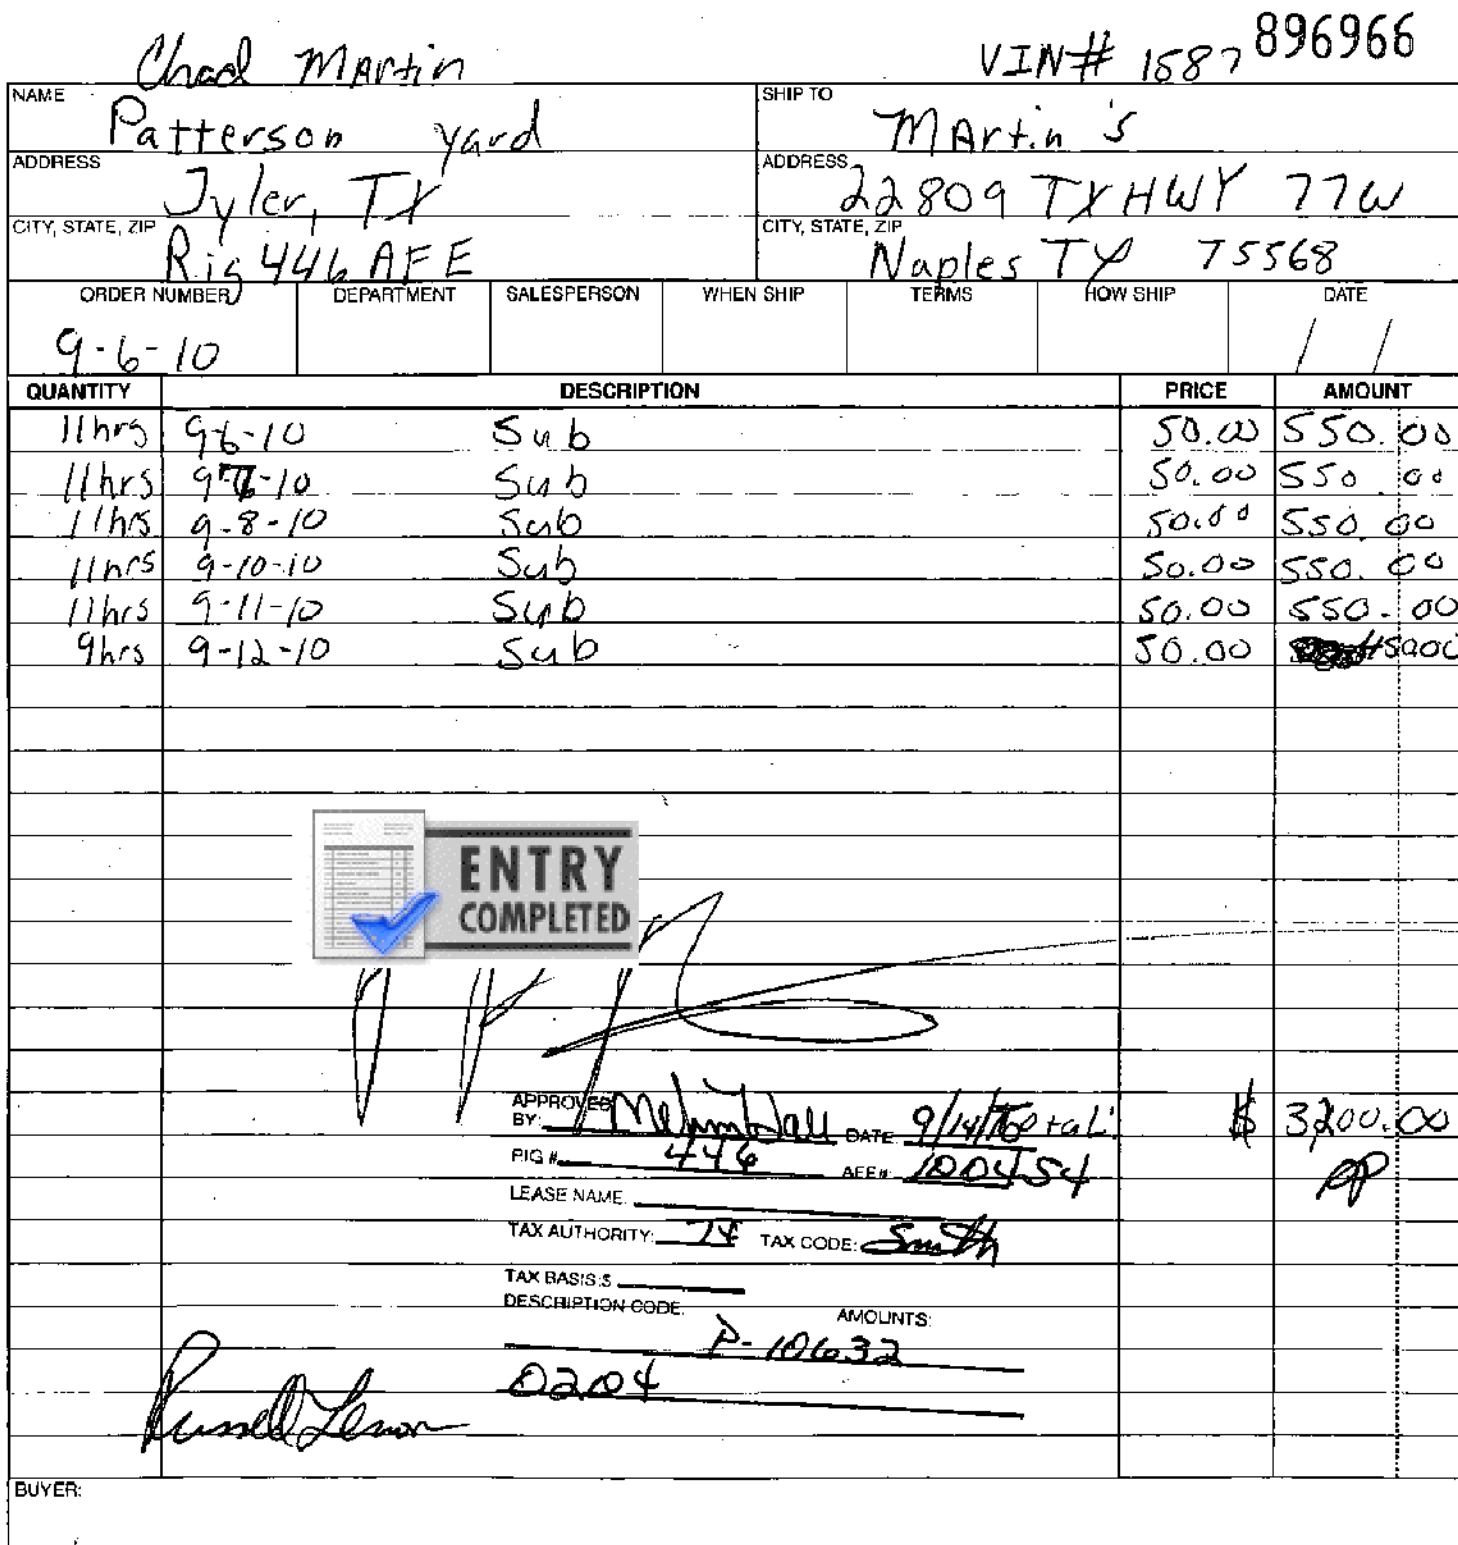 Chad Martin VIN# 1587 896966
NAME SHIP TO
Patterson yard Martin's
ADDRESS ADDRESS
Tyler, TX 22809 TX HWY 77W
CITY, STATE, ZIP CITY, STATE, ZIP
Rig 446 AFE Naples TX 75568
ORDER NUMBER DEPARTMENT SALESPERSON WHEN SHIP TERMS HOW SHIP DATE
9-6-10 / /
QUANTITY DESCRIPTION PRICE AMOUNT
11hrs 9-6-10 Sub 50.00 550.00
11hrs 9-7-10 Sub 50.00 550.00
11hrs 9-8-10 Sub 50.00 550.00
11hrs 9-10-10 Sub 50.00 550.00
11hrs 9-11-10 Sub 50.00 550.00
9hrs 9-12-10 Sub 50.00 45000
ENTRY
COMPLETED
APPROVED
BY: DATE 9/14/10 Total: $ 3200.00
RIG # 446 AFE# 100454
LEASE NAME:
TAX AUTHORITY: TX TAX CODE: Smith
TAX BASIS:$
DESCRIPTION CODE: AMOUNTS:
P-10632
0204
Russell Lemon
BUYER: